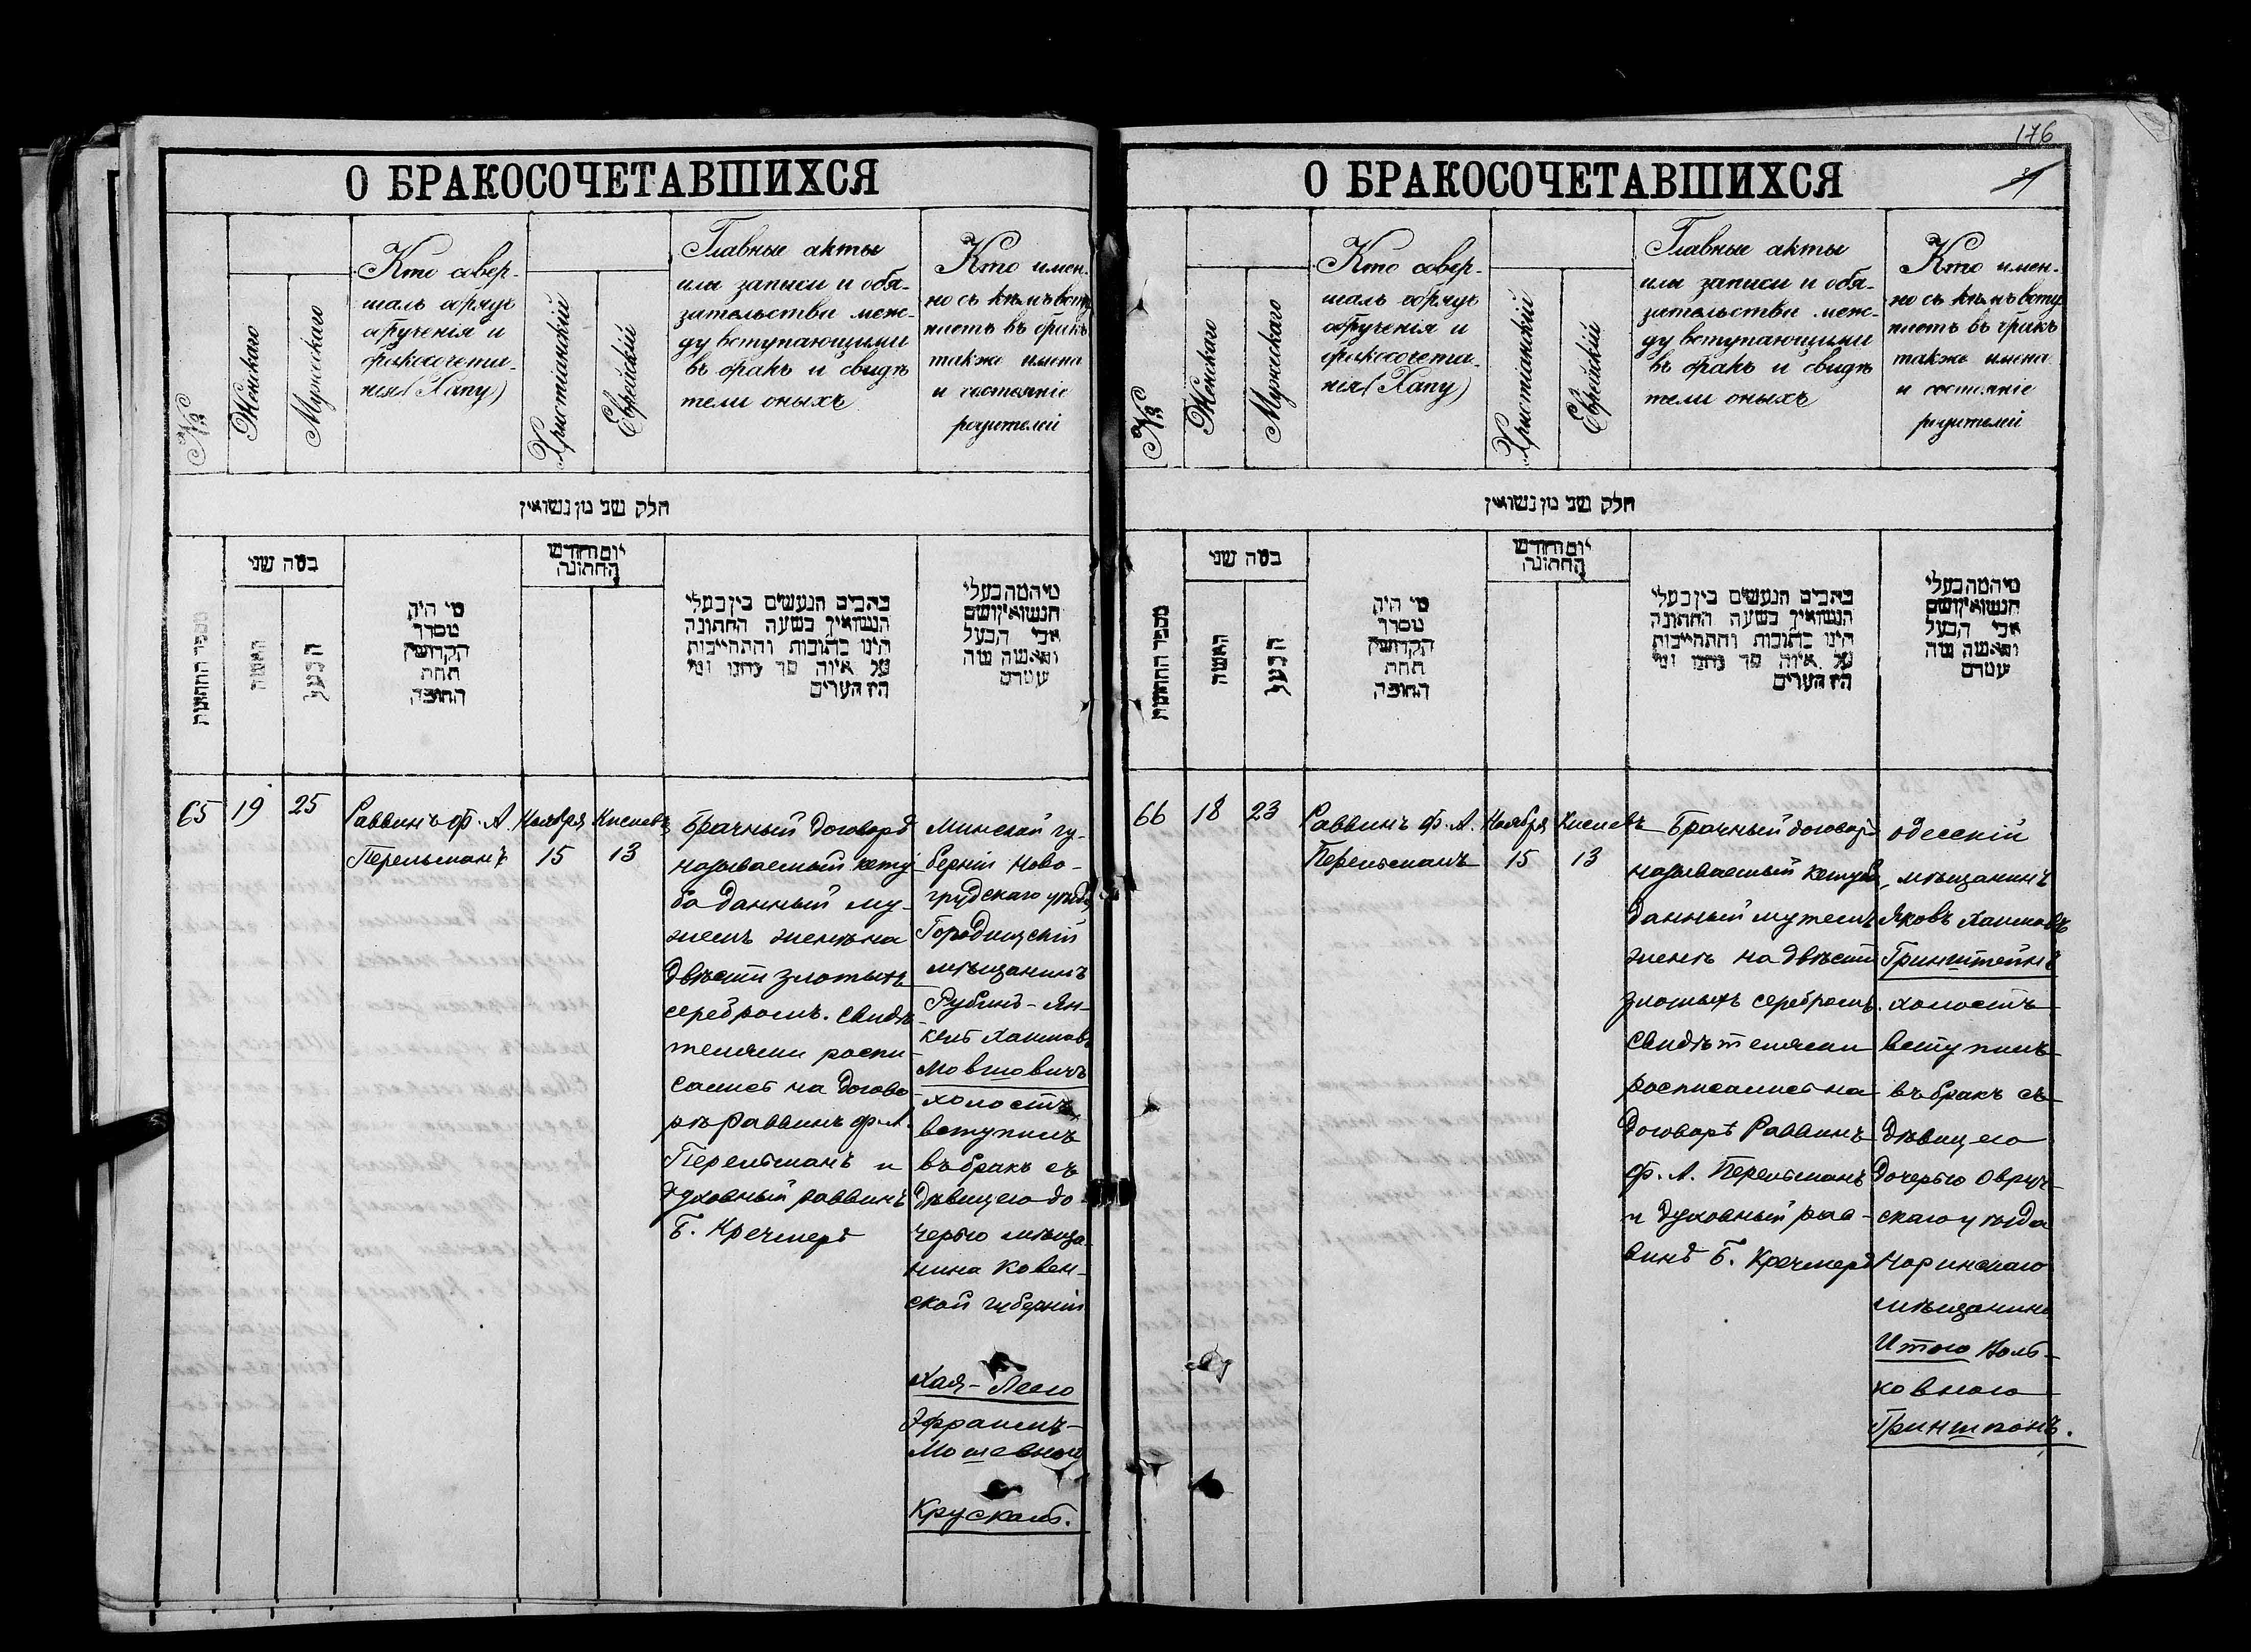 О БРАКОСОЧЕТАВШИХСЯ
№
Женскаго
Мужескаго
Кто совер-
шалъ обрядъ
обрученія и
бракосочета-
нія (Хапу)
Христіанскій
Еврейскій
Главные акты
или записи и обя-
зательства меж-
ду вступающими
въ бракъ и свидѣ
тели оныхъ
Кто имен-
но съ кѣмъ всту
паетъ въ бракъ
также имена
и состояніе
родителей
חלק שני מן נשואין
מספר החתונות
כמה שני
האשה
הבעל
מי היה
מסדר
הקדושין
תחת
החופה
יום וחודש
החתונה
כתבים הנעשים בין בעלי
הנשואין בשעה החתונה
הינו כתובות והתחייבות
על איזה סך נתנו ומי
היו הערים
מיהמה בעלי
הנשואין ושם
אבי הבעל
והאשה ומה
עמדם
65
19
25
Раввинъ Ф. А.
Перельманъ
Ноября
15
Кислевъ
13
Брачный договоръ
называемый кету
ба данный му-
жемъ женѣ на
двѣсти злотыхъ
серебромъ. Свидѣ
телями распи
сались на догово
рѣ Раввинъ Ф. А.
Перельманъ и
духовный раввинъ
Б. Кречмеръ
Минской гу-
берніи Ново-
грудскаго уѣзда
Городищскій
мѣщанинъ
Рубинъ-Ян-
кель Хаимовъ
Мовшовичъ
холостъ
вступилъ
въ бракъ съ
дѣвицею до
черью мѣща-
нина Ковен-
ской губерніи
Хая-Леею
Эфраимъ-
Мошевною
Крускаль.
176
О БРАКОСОЧЕТАВШИХСЯ
№
Женскаго
Мужескаго
Кто совер-
шалъ обрядъ
обрученія и
бракосочета-
нія (Хапу)
Христіанскій
Еврейскій
Главные акты
или записи и обя-
зательства меж-
ду вступающими
въ бракъ и свидѣ
тели оныхъ
Кто имен-
но съ кѣмъ всту
паетъ въ бракъ
также имена
и состояніе
родителей
חלק שני מן נשואין
מספר החתונות
כמה שני
האשה
הבעל
מי היה
מסדר
הקדושין
תחת
החופה
יום וחודש
החתונה
כתבים הנעשים בין בעלי
הנשואין בשעה החתונה
הינו כתובות והתחייבות
על איזה סך נתנו ומי
היו הערים
מיהמה בעלי
הנשואין ושם
אבי הבעל
והאשה ומה
עמדם
66
18
23
Раввинъ Ф. А.
Перельманъ
Ноября
15
Кислевъ
13
Брачный договоръ
называемый кетуба
данный мужемъ
женѣ на двѣсти
злотыхъ серебромъ.
Свидѣтелями
росписались на
договорѣ Раввинъ
Ф. А. Перельманъ
и духовный рав-
винъ Б. Кречмеръ
Одесскій
мѣщанинъ
Яковъ Хаимовъ
Гринштейнъ
холостъ
вступилъ
въ бракъ съ
дѣвицею
дочерью Овруч-
скаго уѣзда
Норинскаго
мѣщанина
Итою Воль-
ковною
Гриншпонъ.